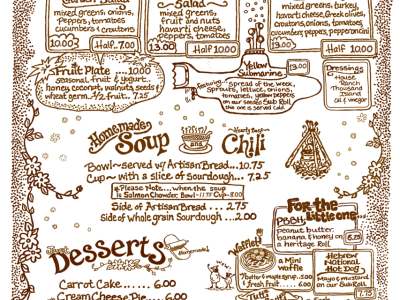 Garden Salad
mixed greens, onions,
peppers, tomatoes
cucumbers & croutons
10.00 Half 7.00
Salad
mixed greens,
fruit and nuts
havarti cheese,
peppers, tomatoes
13.00 Half 10.00
mixed greens, turkey,
havarti cheese, Greek olives,
croutons, onions, tomatoes,
cucumbers, peppers, pepperoncini
13.00 Half 10.00
Fruit Plate .... 10.00
seasonal fruit & yogurt,
honey, coconut, walnuts, seeds &
wheat germ. 1/2 fruit... 7.25
Yellow
Submarine
13.00
featuring... spread of the week,
sprouts, lettuce, onions,
tomatoes, yellow peppers
on our seeded Sub Roll
this one is served cold
Dressings
House
Ranch
Thousand
Island
oil & vinegar
Homemade
Soup
ans
Hearty Bean
Chili
Bowl~served w/ Artisan Bread... 10.75
Cup~ with a slice of sourdough... 7.25
Please Note... when the soup
is Salmon Chowder Bowl~11.75 Cup~8.00
Side of Artisan Bread .... 2.75
Side of whole grain Sourdough ...2.00
For the
Little one...
PBBH
Peanut butter
banana & honey on
a heritage Roll
Hebrew
National
Hot Dog
mayo & mustard
on our Sub Roll
Wafflett
a Mini
waffle
butter & maple syrup
fresh fruit
6.00
Desserts
Homemade!
Carrot Cake....... 6.00
Cream Cheese Pie.... 6.00